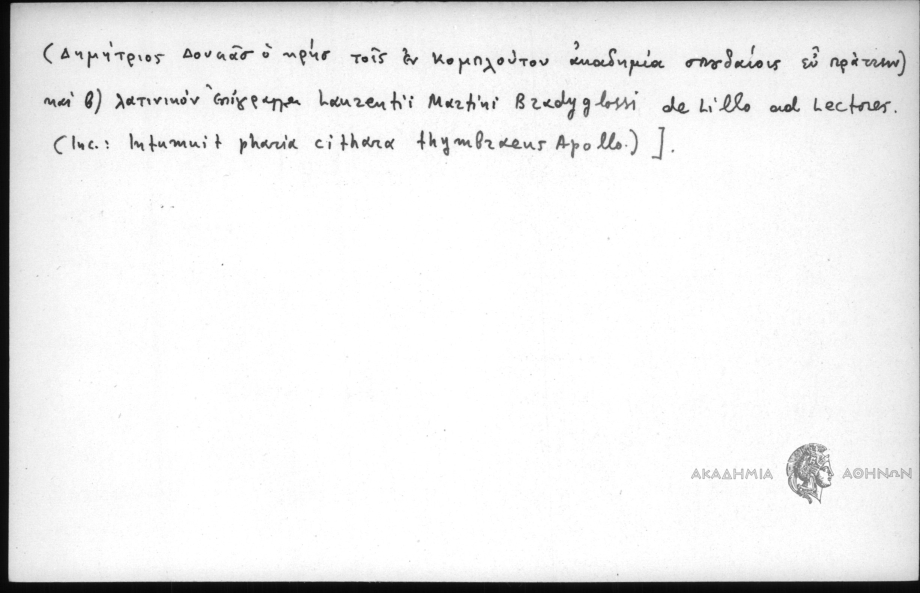 (Δημήτριος Δουκᾶσ ὁ κρήσ τοῖς ἐν κομπλούτου ἀκαδημία σπουδαίοις εὖ πράττειν)
καί β) λατινικόν ἐπίγραμμα Laurentii Martini Bradyglossi de Lillo ad Lectores.
(Inc.: Intumuit pharia cithara thymbraeus Apollo.) ].
ΑΚΑΔΗΜΙΑ ΑΘΗΝΩΝ